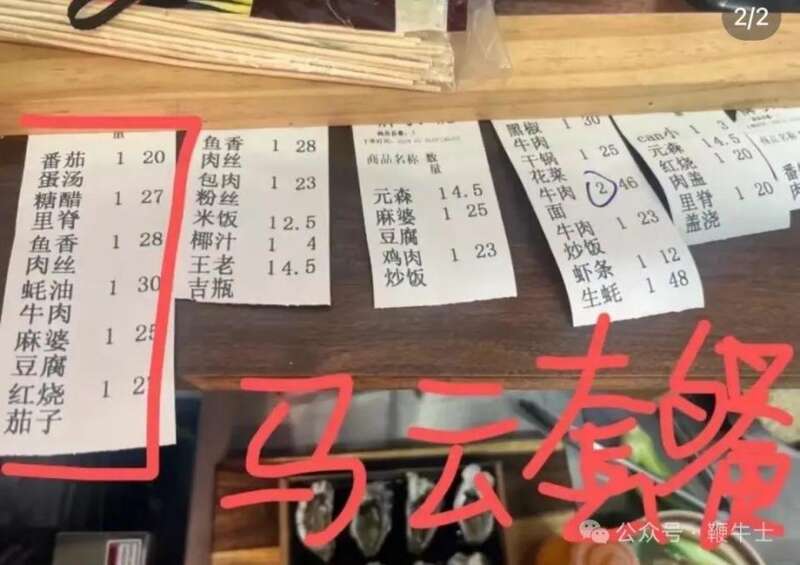 2/2
量
番茄 1 20
蛋汤
糖醋 1 27
里脊
鱼香 1 28
肉丝
蚝油 1 30
牛肉
麻婆 1 25
豆腐
红烧 1
茄子
鱼香 1 28
肉丝
包肉 1 23
粉丝
米饭 1 2.5
椰汁 1 4
王老 1 4.5
吉瓶
商品名称 数
量
元森 1 4.5
麻婆 1 25
豆腐
鸡肉 1 23
炒饭
黑椒 1 30
牛肉
干锅 1 25
花菜
牛肉 2 46
面
牛肉 1 23
炒饭
虾条 1 12
生蚝 1 48
can小 1 3
元森 1 4.5
红烧 1 20
肉盖
里脊 1 20
盖浇
商品名称
马云套餐
公众号·鞭牛士